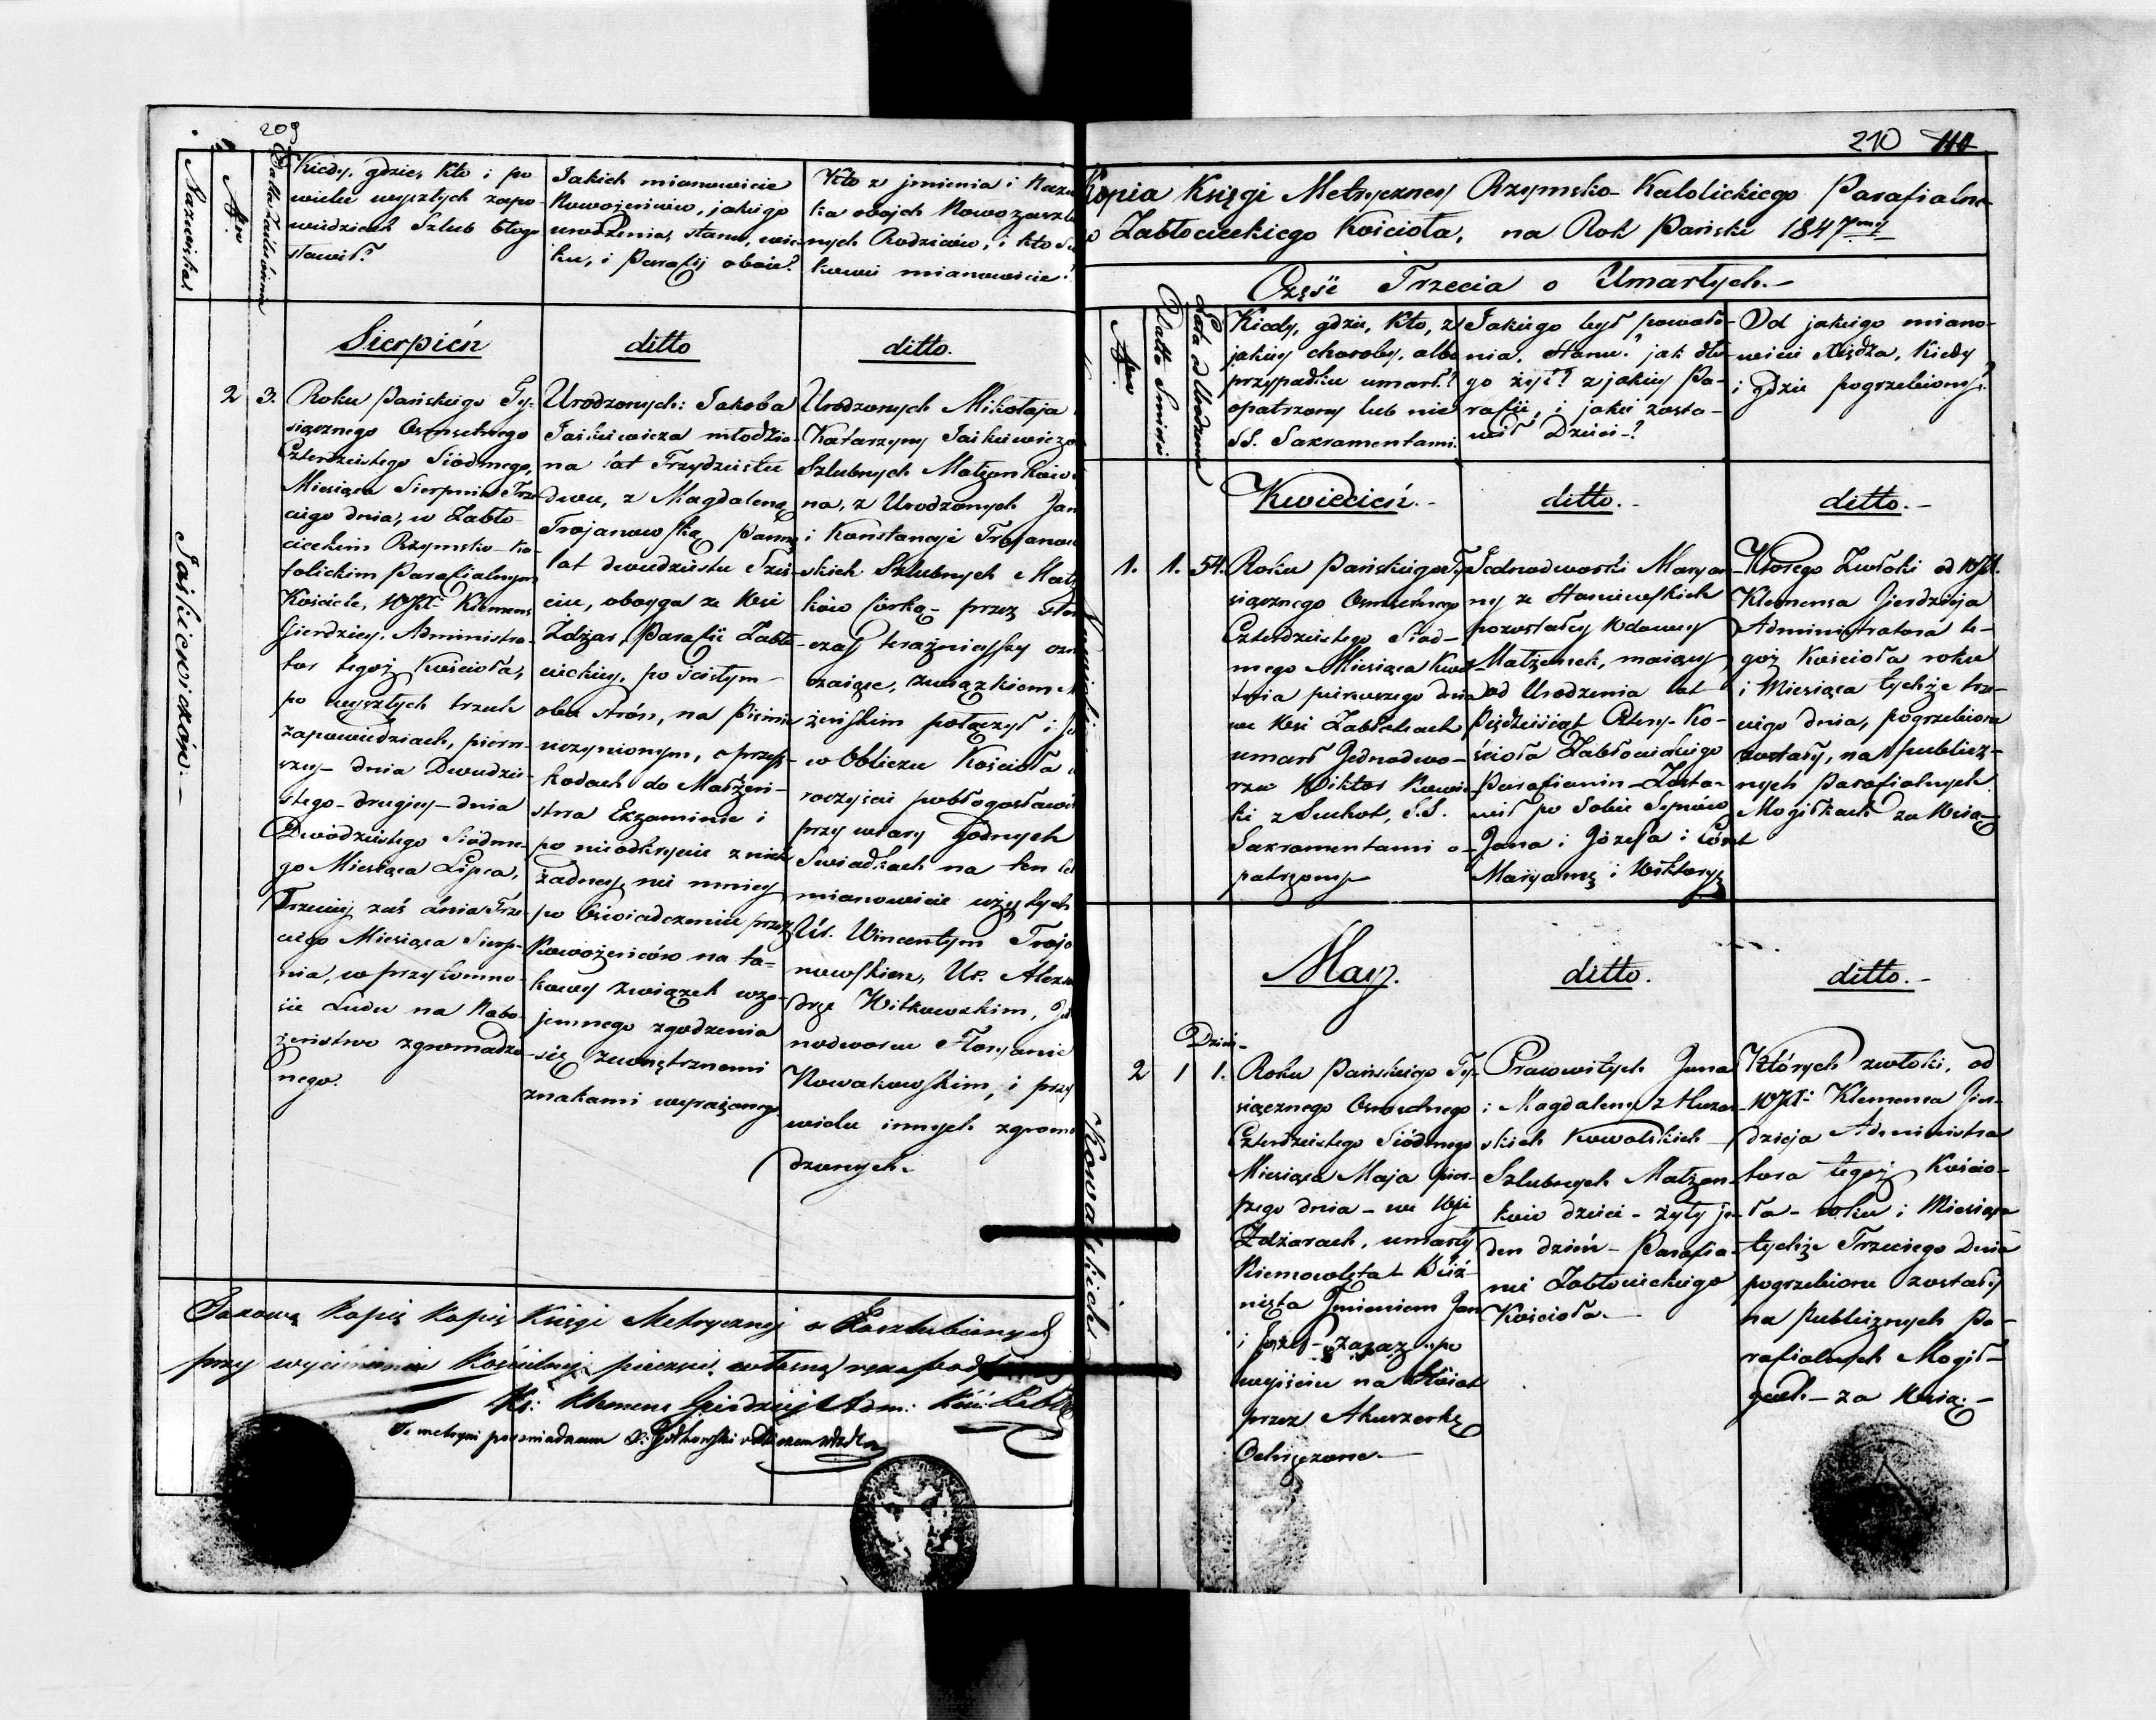 209
Nazwiska
Nro
Datta Zaślubienia
Kiedy, gdzie, kto i po
wielu wyszłych zapo-
wiedziach Szlub błogo
sławił?
Jakich mianowicie
Nowożeńców, jakiego
urodzenia, stanu, wie-
ku, i Parafij oboie?
Kto z jmienia i Nazw
ka obojch Nowozaszlu
nych Rodziców, i kto
kowie mianowicie?
Jaśkiewiczów.-
Sierpień
2 3. Roku Pańskiego Ty-
siącznego Osmsetnego
Czterdziestego Siódmego,
Miesiąca Sierpnia Trze-
ciego dnia, w Zabło-
cieckim Rzymsko-Ka-
tolickim Parafialnym
Kościele, WJX: Klemens
Gierdziej, Administra-
tor tegoż Kościoła,
po wyszłych trzech
zapowiedziach, pierw-
szey dnia Dwudzie-
stego-drugiey-dnia
Dwódziestego Siódme-
go Miesiąca Lipca,
Trzeciey zaś dnia Trze-
ciego Miesiąca Sierp-
nia, w przytomno-
ści Ludu na Nabo-
żeństwo zgromadzo-
nego.
ditto
Urodzonych: Jakóba
Jaśkiewicza młodzie-
na lat Trzydziestu
dwu, z Magdaleną
Trojanowską Panną
lat dwudziestu Trze-
ciu, oboyga ze Wsi
Zdżar, Parafii Zabło-
cieckiey, po ścisłym
obu stron, na piśmie
uczynionym, o przesz-
kodach do Małżeń-
stwa Exzaminie i
po nieodkryciu z nich
żadney, ni mniey
po Oświadczeniu przez
Nowożeńców na ta-
kowy związek wza-
jemnego zgodzenia
-się zewnętrznemi
znakami wyrażonego
ditto.
Urodzonych Mikołaja
Katarzyny Jaśkiewiczó
Szlubnych Małżonków
na, z Urodzonych Jan
i Konstancji Trojanow
skich Szlubnych Małż
ków córką- przez
czas teraźnieyszy
czaiące, związkiem
żeńskim połączył i
w Obliczu Kościoła
roczyście pobłogosławił
przy wiary godnych
Swiadkach na ten
mianowicie użytych
Ur. Wincentym Troja
nowskim, Ur. Alexan
drze Witkowskim, Je
nodworcu Floryanie
Nowakowskim, i przy
wielu innych zgroma
dzonych.
Takową Kopię Kopię Księgi Metryczney o Zaszlubionych
przy wyciśnieniu Kościelnej pieczęci, własną ręką
Ks: Klemens Gierdziej Adm: Kość.
210 110
Kopia Księgi Metryczney Rzymsko-Katolickiego Parafialne
Zabłocieckiego Kościoła, na Rok Pański 1847my
Część Trzecia o Umarłych.-
Nro
Datta Smierci
Lata od Urodzenia
Kiedy, gdzie, kto, z
jakiey choroby, albo
przypadku umarł?
opatrzony lub nie
SS. Sakramentami.
Jakiego był powoła-
nia, Stanu? jak dłu-
go żył? z jakiey Pa-
rafii, i jakie zosta-
wił Dzieci-?
Od jakiego miano-
wicie Xiędza, Kiedy
i gdzie pogrzebiony?
Kwiecień.-
1. 1. 54. Roku Pańskiego Ty-
siącznego Osmsetnego
Czterdziestego Siód-
mego Miesiąca Kwie-
tnia pierwszego dnia
we Wsi Zabłoćcach
umarł Jednodwo-
rzec Wiktor Nowic-
ki z Suchot, S.S.
Sakramentami o-
patrzony
ditto.-
Jednodworski Maryan-
ny ze Staniewskich
pozostałey Wdowy
Małżonek, maiący
od Urodzenia lat
Pięćdziesiąt Cztery. Ko-
ścioła Zabłocieckiego
Parafianin-Zosta-
wił po Sobie Synów
Jana i Józefa i Córk
Maryannę i Wiktoryę
ditto.-
Którego Zwłoki od WJX.
Klemensa Gierdzieja
Administratora te-
goż Kościoła roku
i Miesiąca tychże trze-
ciego dnia, pogrzebione
zostały, na publicz-
nych Parafialnych
Mogiłkach za Wsią
Kowalskich
May.
Dzień-
2 1 1. Roku Pańskiego Ty-
siącznego Osmsetnego
Czterdziestego Siódmego
Miesiąca Maja pier-
szego dnia - we Wsi
Zdżarach, umarły
Niemowlęta Bliź-
nięta Jmieniem Jan
i Józef-zaraz po
wyjściu na Świat
przez Akuszerkę
Ochrzczone.-
ditto.
Pracowitych Jana
i Magdaleny z Huzar-
skich Kowalskich
Szlubnych Małżon-
ków dzieci - żyły je-
den dzień - Parafia-
nie Zabłocieckiego
Kościoła.-
ditto.-
Których zwłoki, od
WJX: Klemensa Gier-
dzieja Administra
tora tegoż Kościo-
ła - roku i Miesiąca
tychże Trzeciego Dnia
pogrzebione zostały
na Publicznych Pa-
rafialnych Mogił-
kach-za Wsią-